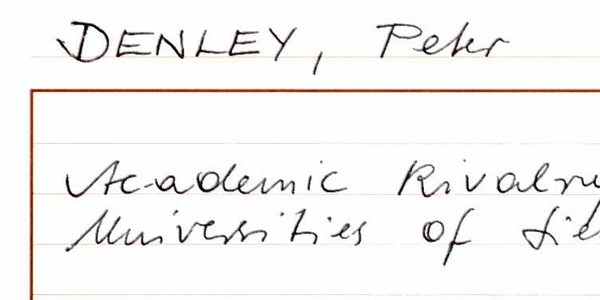 DENLEY, Peter
Academic Rivalry
Universities of Sie